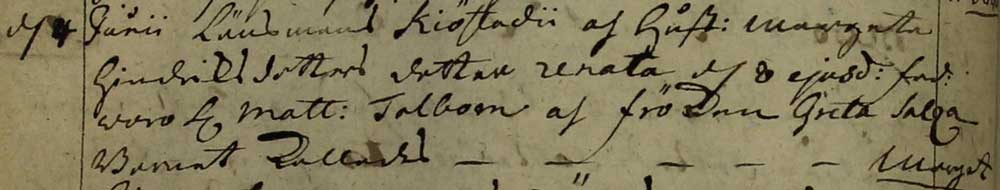 d 4 Junii Länsmans Kiöstadii af Hust: Margeta
Hindrichsdotters dotter renata d 8 ejusd: fad:
voro H. Matt: Talbom af frö Den Greta Salga
Barnet Kallades — — — — — Marget